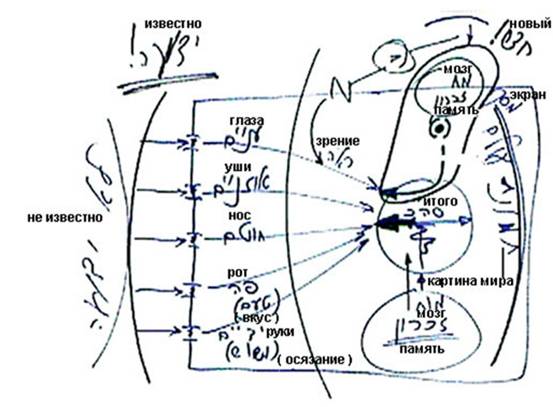 известно
новый
ידוע!
חדש!
мозг
מוח
экран
память
זכרון
глаза
עינים
зрение
уши
אוזנים
итого
סה"כ
нос
חוטם
не известно
לא ידוע
рот
פה
(טעם)
( вкус )
картина мира
руки
ידיים
מוח
мозг
זכרון
память
( осязание )
N